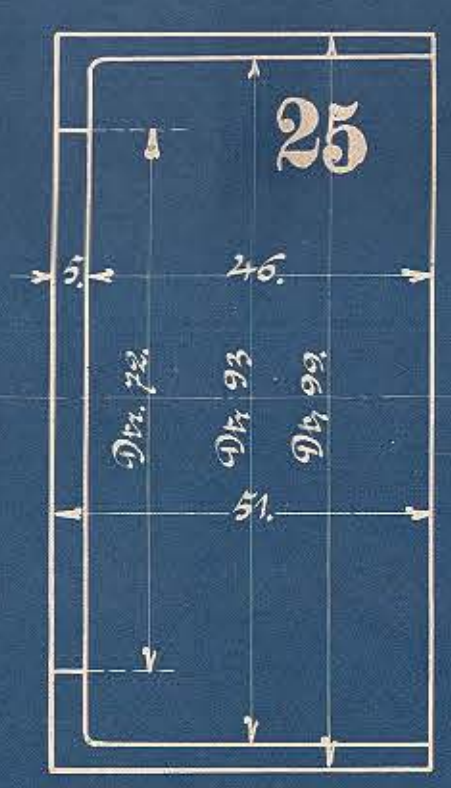 25
5.
46.
Dtr. 72.
Dtr 93
Dtr 99.
51.